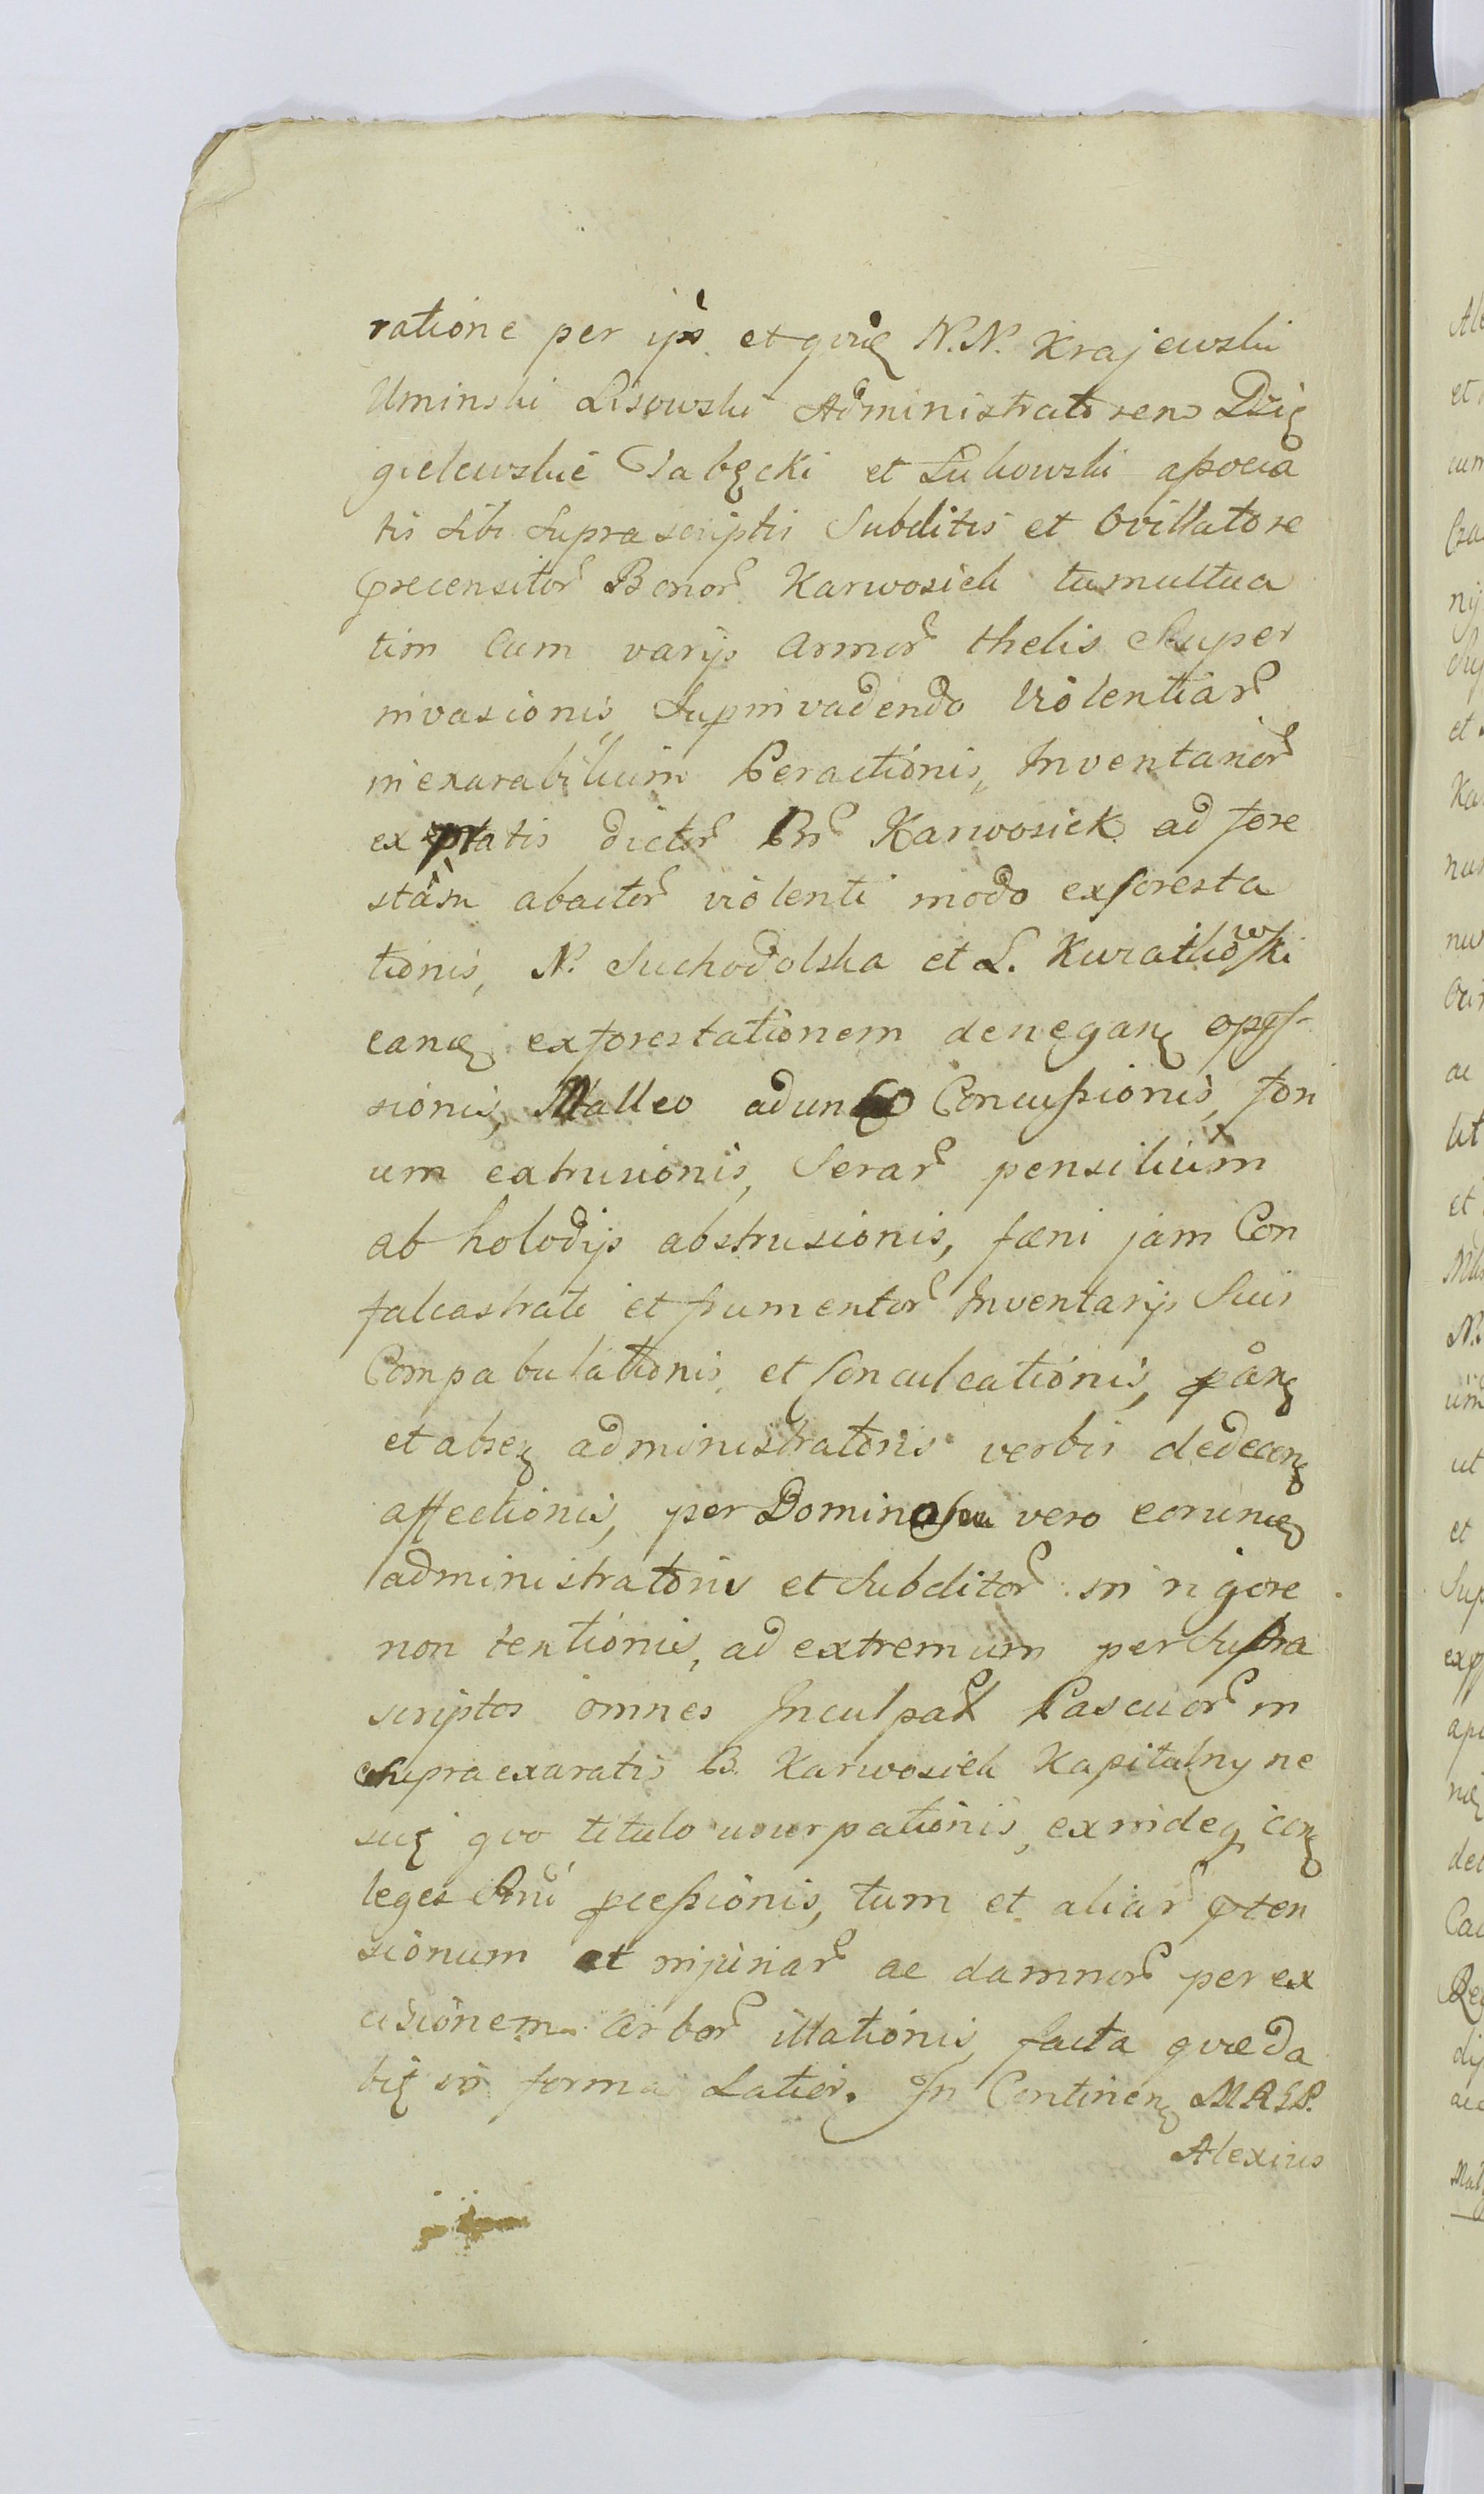 ratione per ips et qvię N.N. Krajewski
Uminski Lisowski Administratoren Dzię
gielewskie Jabęcki et Lukowski associa
tis sibi supra scriptis Subditis et Ovillatore
precensitor Bonor Karwosiek tumultua
tim Cum varijs armor thelis super
invasionis, Supinvadendo violentiar
inexarabilium Peractionis, Inventarior
ex pratis dictor Br Karwosiek ad fore
stam abactor violenti modo exforesta
tionis, N. Suchodolska et L. Kurathowski
eanę exforestationem denegan
sionis, Malleo adunco Concussionis, fori
um extrusionis, Serar pensilium
ab holodijs abstrusionis, fæni jam Con
falcastrati et frumentor Inventarijs Suis
Compabulationis et Conculcationis, pång
et abseę administratoris verbis dedecorę
affectionis, per Dominos vero eorumę
administratoris et Subditor in rigore
non tentionis, ad extremum per Supra
scriptos omnes Inculpat Pascuor in
supra exaratis B. Karwosiek Kapitulny ne
scię qvo titulo usurpationis, exindeq con
leges Rni pcessionis, tum et aliar pten
sionum et injuriar ac damnor per ex
cisionem arbor illationis, facta qvæ da
bit in forma Latior. In Continen MRSP.
Alexius